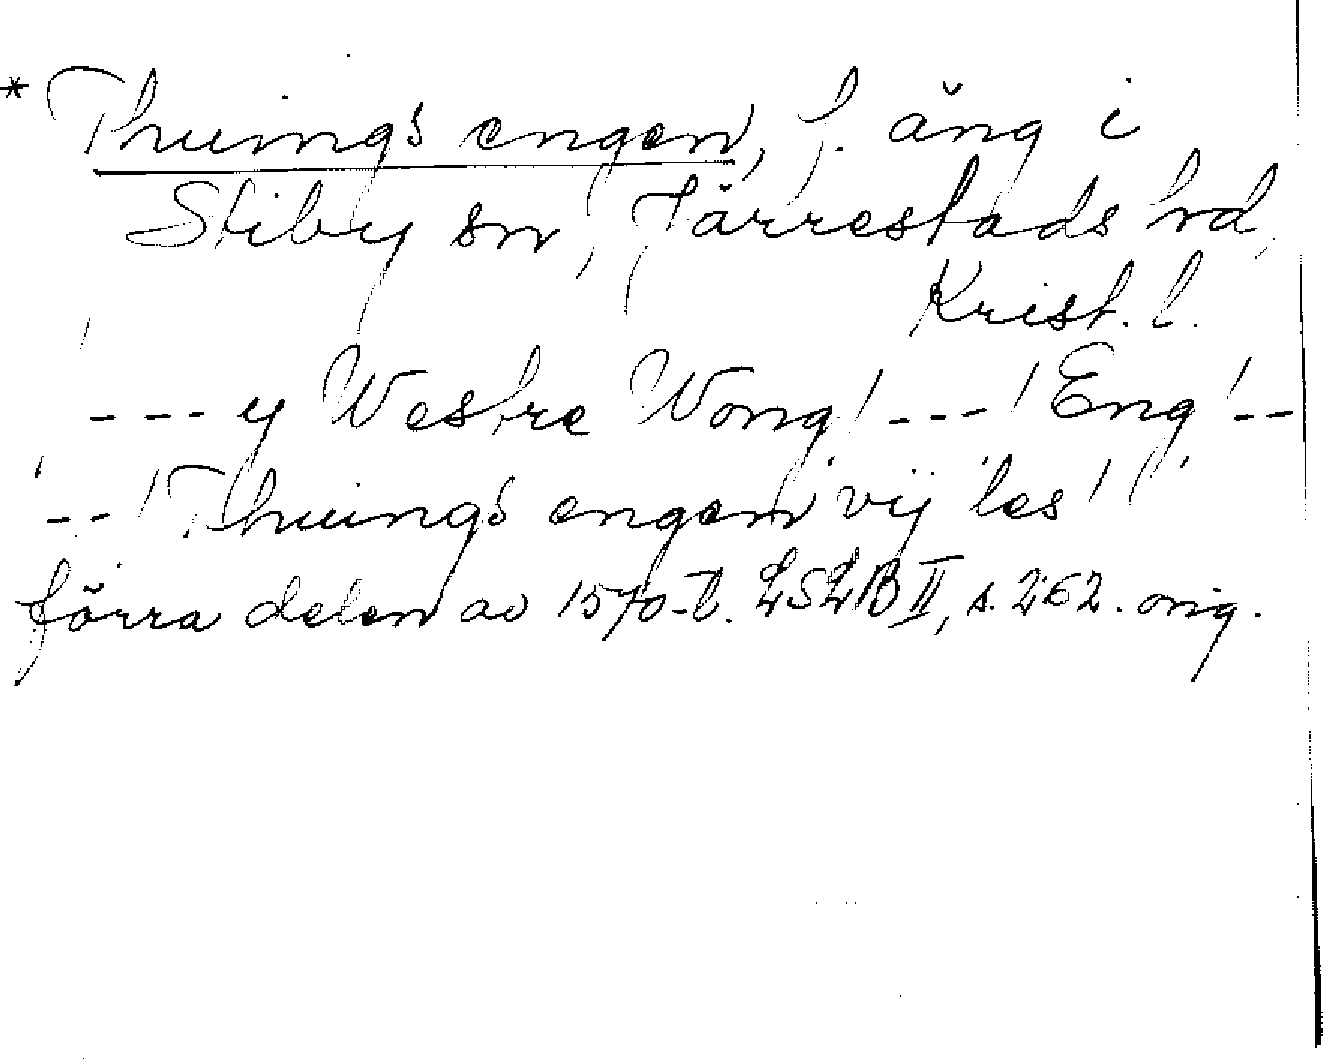 * Thuings engen, f. äng i
Stiby sn, Järrestads hd,
Krist. l.
--- y Westre Wong / --- / Eng / --
-- / Thuings engen vij les /
förra delen av 1570-t. LSLB II, s. 262. orig.